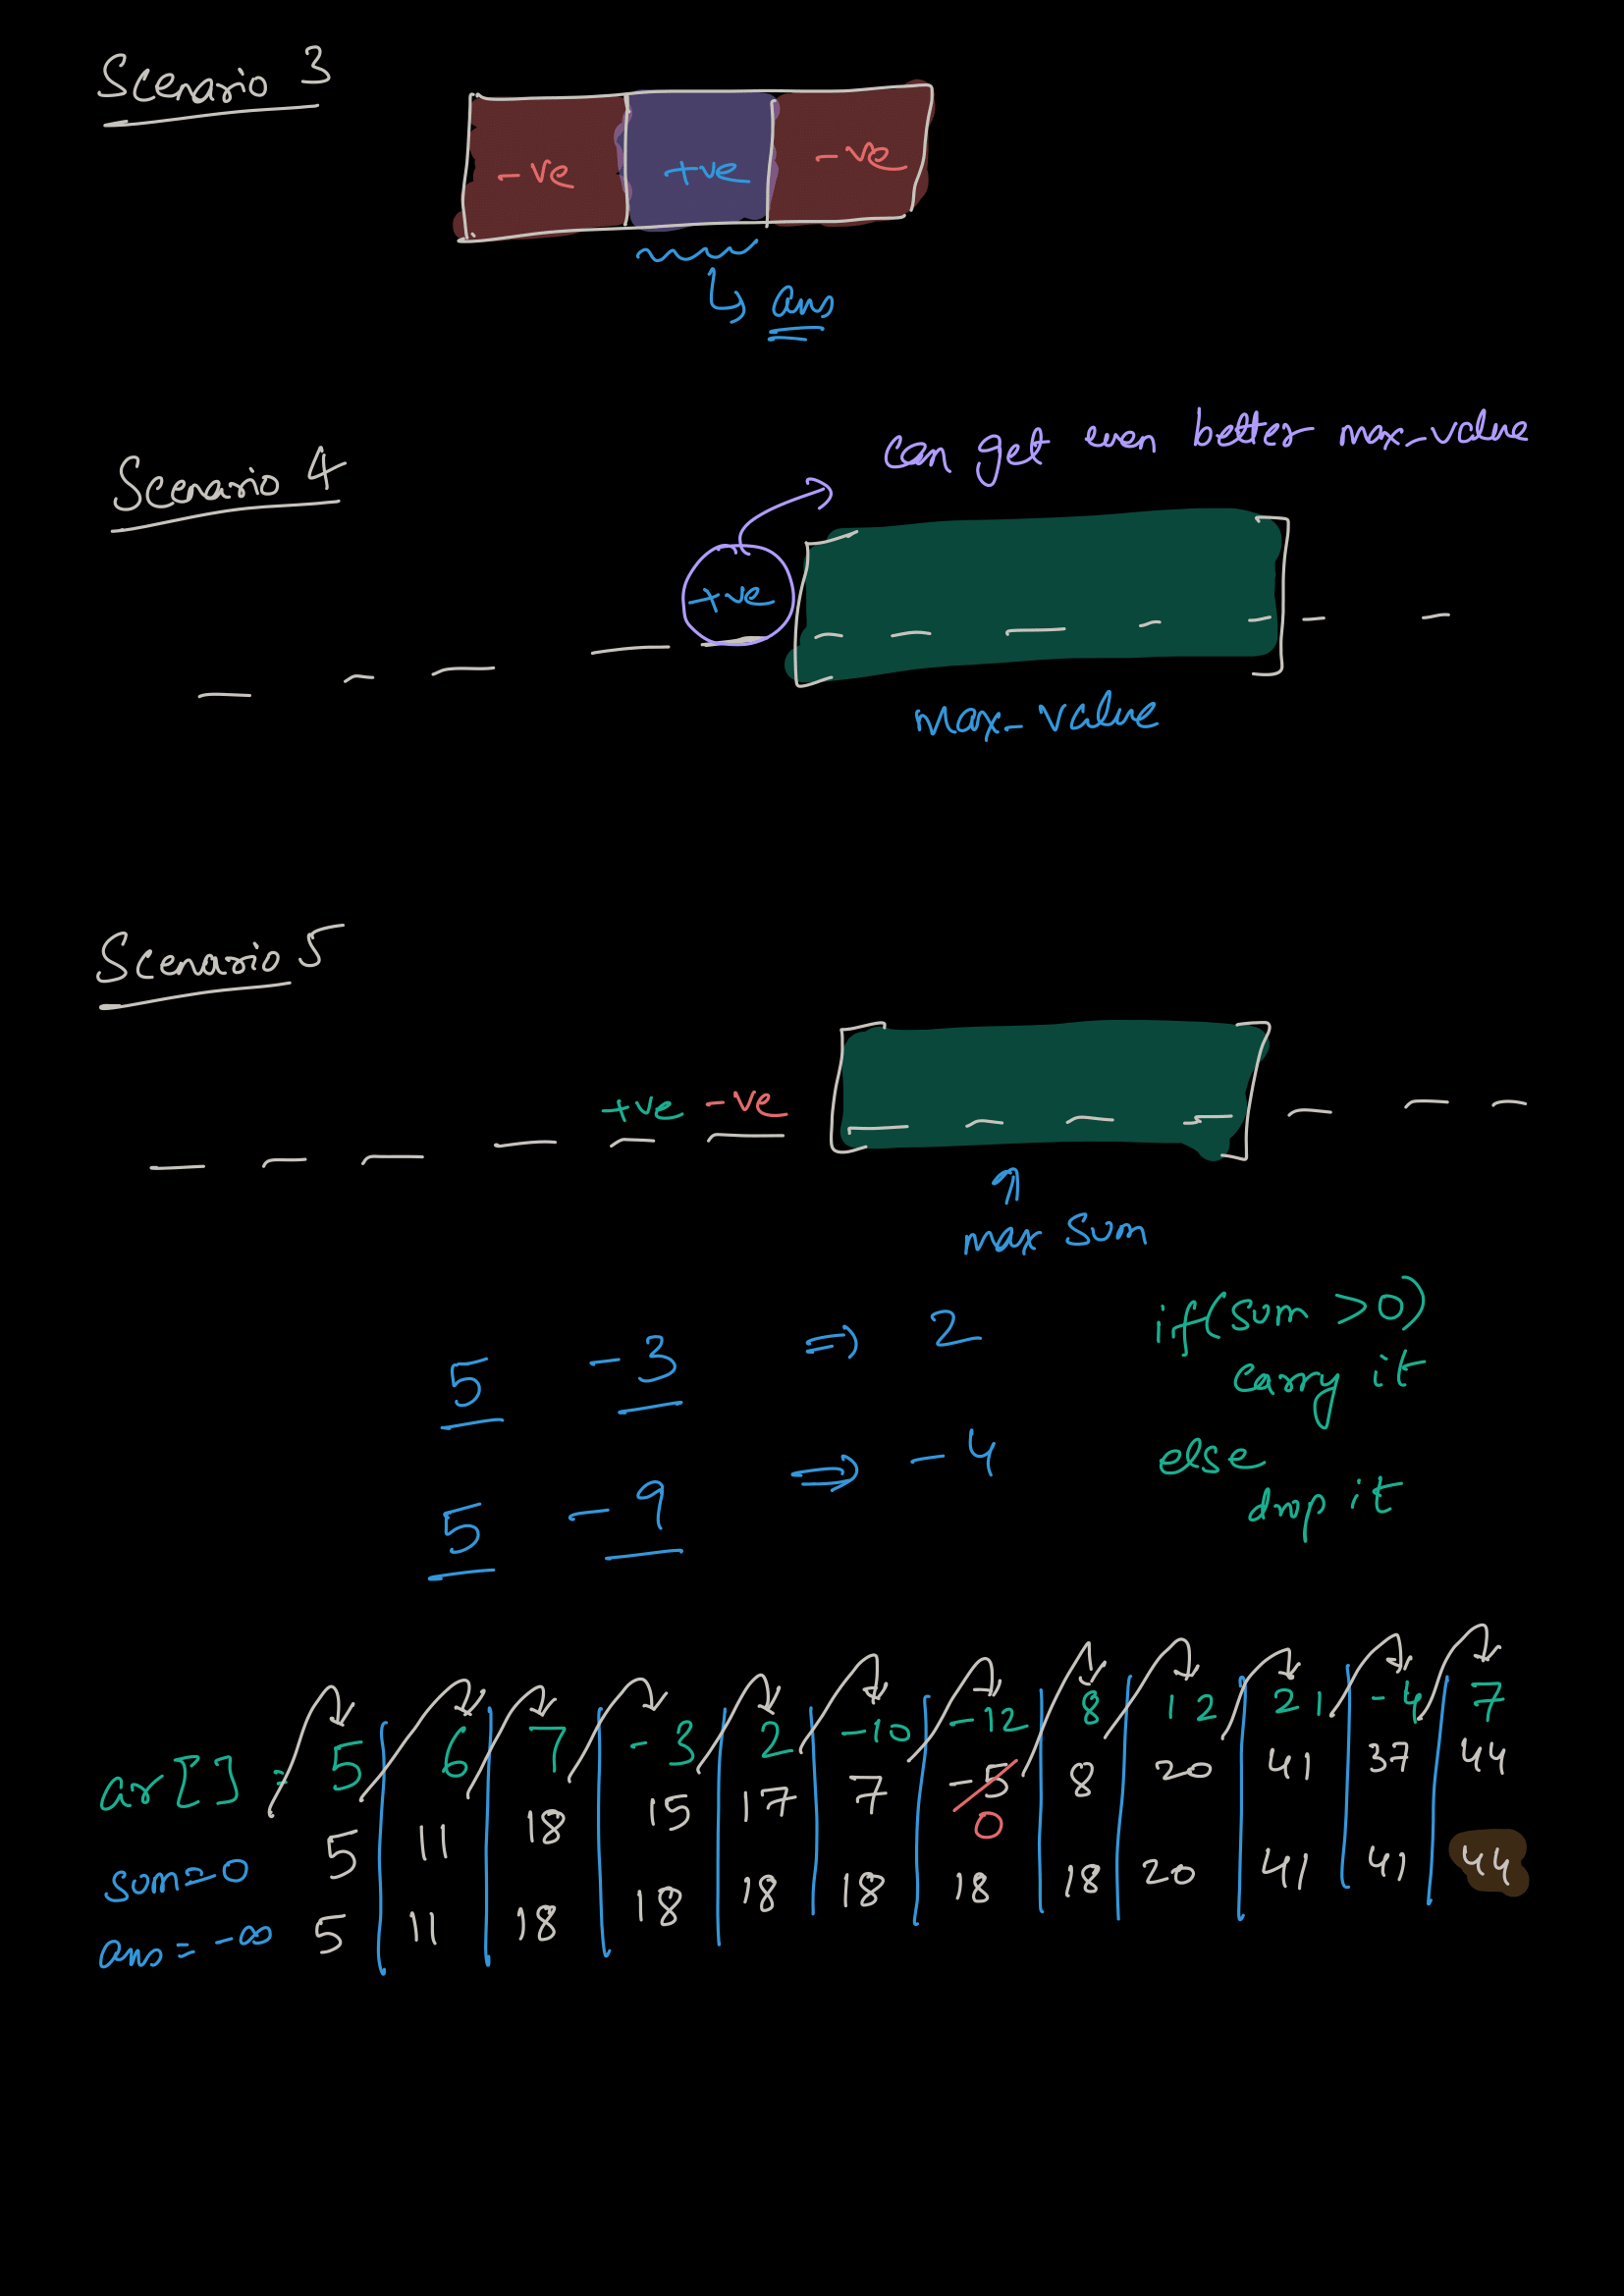 Scenario 3
-ve +ve -ve
ans
Scenario 4
can get even better max_value
+ve
max_value
Scenario 5
+ve -ve
max sum
5 -3 ⇒ 2
if(sum >0)
carry it
5 -9 ⇒ -4
else
drop it
ar[] = 5 6 7 -3 2 -10 -12 8 12 21 -4 7
sum=0 5 11 18 15 17 7 -5 0 8 20 41 37 44
ans = -∞ 5 11 18 18 18 18 18 18 20 41 41 44